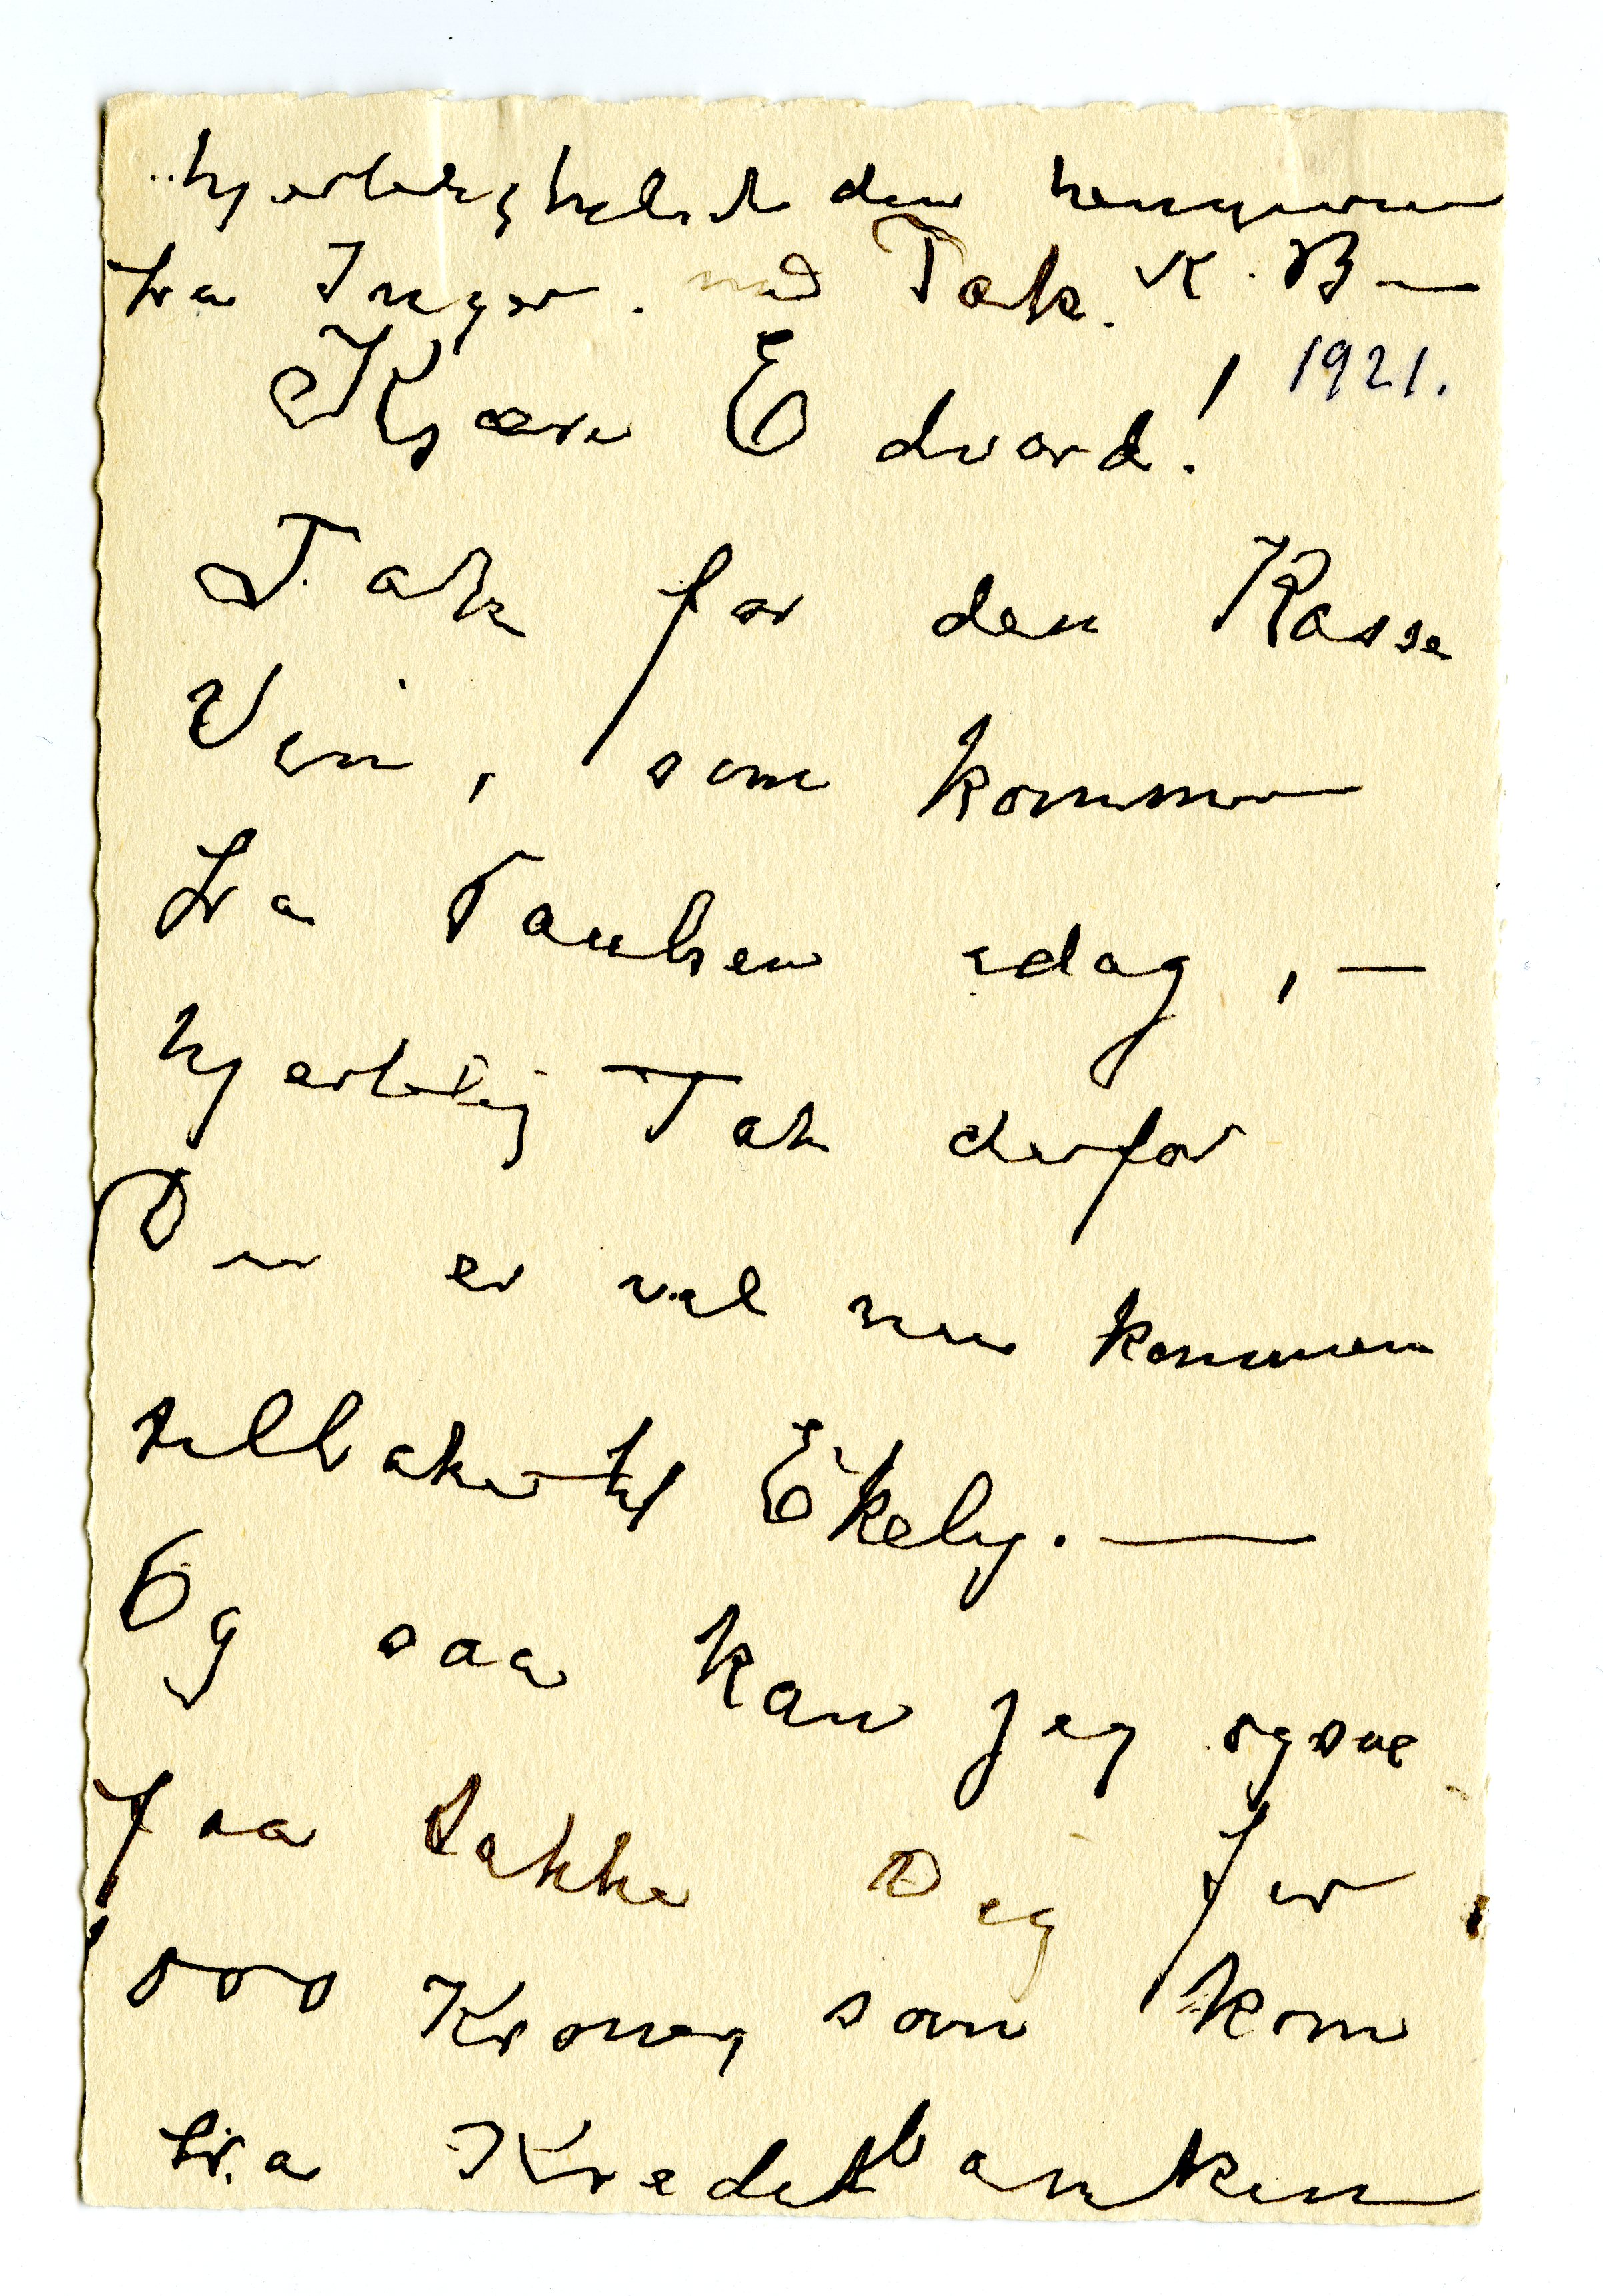 hjertelig helset den
fra Inger. med Tak. K. B—
1921.
Kjære Edvard!
Tak for den Kasse
Vin, som kommer
fra Poulsen idag, —
hjertelig Tak derfor
Du er vel nu kommen
tilbake til Ekely. —
Og saa kan jeg ogsaa
faa takke Dig for
500 Kroner, som kom
fra Kreditbanken